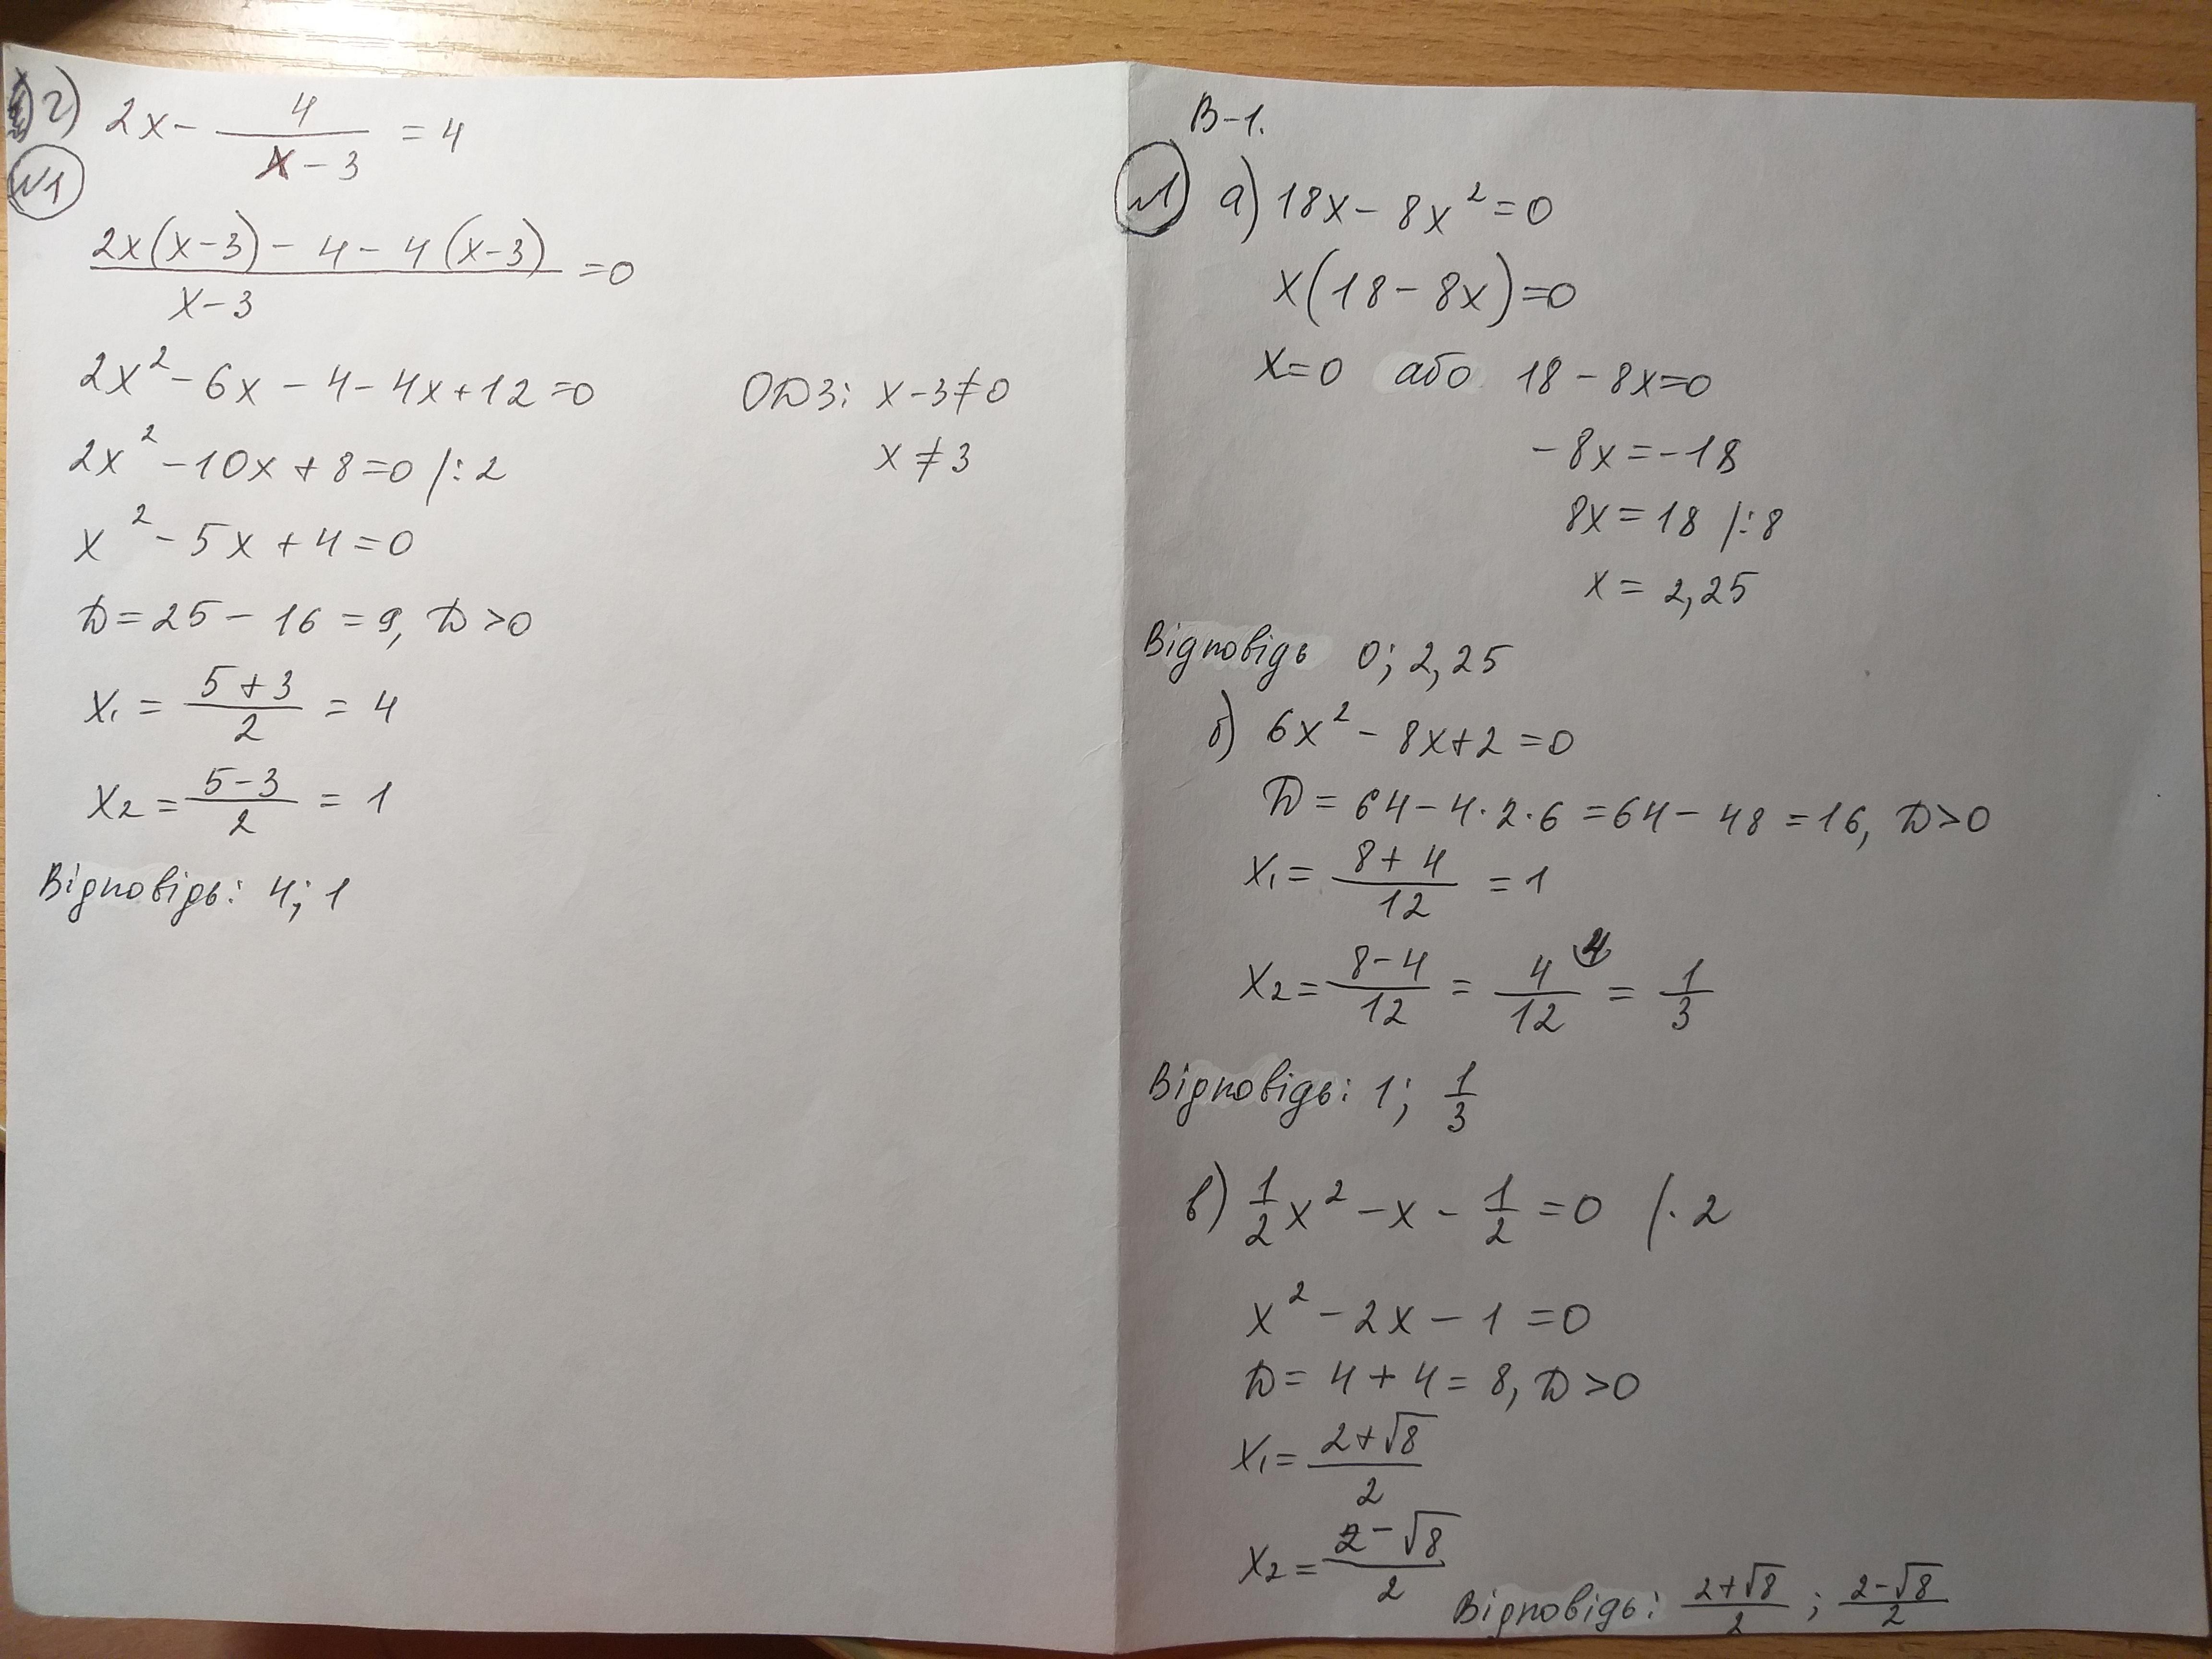 г) 2x - 4/(x - 3) = 4
№1
(2x(x-3) - 4 - 4(x-3))/(x-3) = 0
2x² - 6x - 4 - 4x + 12 = 0
ОДЗ: x - 3 ≠ 0
2x² - 10x + 8 = 0 /:2
x ≠ 3
x² - 5x + 4 = 0
D = 25 - 16 = 9, D > 0
x₁ = (5+3)/2 = 4
x₂ = (5-3)/2 = 1
Відповідь: 4; 1
В-1.
№1 а) 18x - 8x² = 0
x(18 - 8x) = 0
x = 0 або 18 - 8x = 0
-8x = -18
8x = 18 /:8
x = 2,25
Відповідь 0; 2,25
б) 6x² - 8x + 2 = 0
D = 64 - 4·2·6 = 64 - 48 = 16, D > 0
x₁ = (8+4)/12 = 1
x₂ = (8-4)/12 = 4/12 ⁴ = 1/3
Відповідь: 1; 1/3
в) 1/2 x² - x - 1/2 = 0 /·2
x² - 2x - 1 = 0
D = 4 + 4 = 8, D > 0
x₁ = (2+√8)/2
x₂ = (2-√8)/2
Відповідь: (2+√8)/2 ; (2-√8)/2